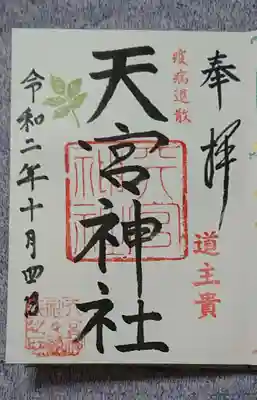 奉拝
疫病退散
道主貴
天宮神社
令和二年十月四日